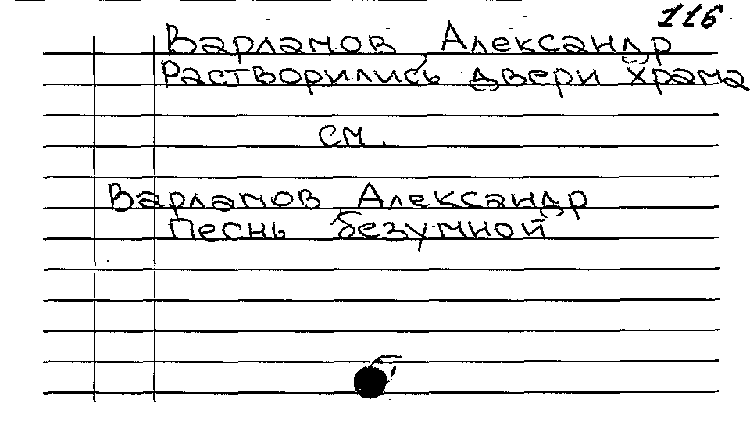 116
Варламов Александр
Растворились двери храма
см.
Варламов Александр
Песнь безумной